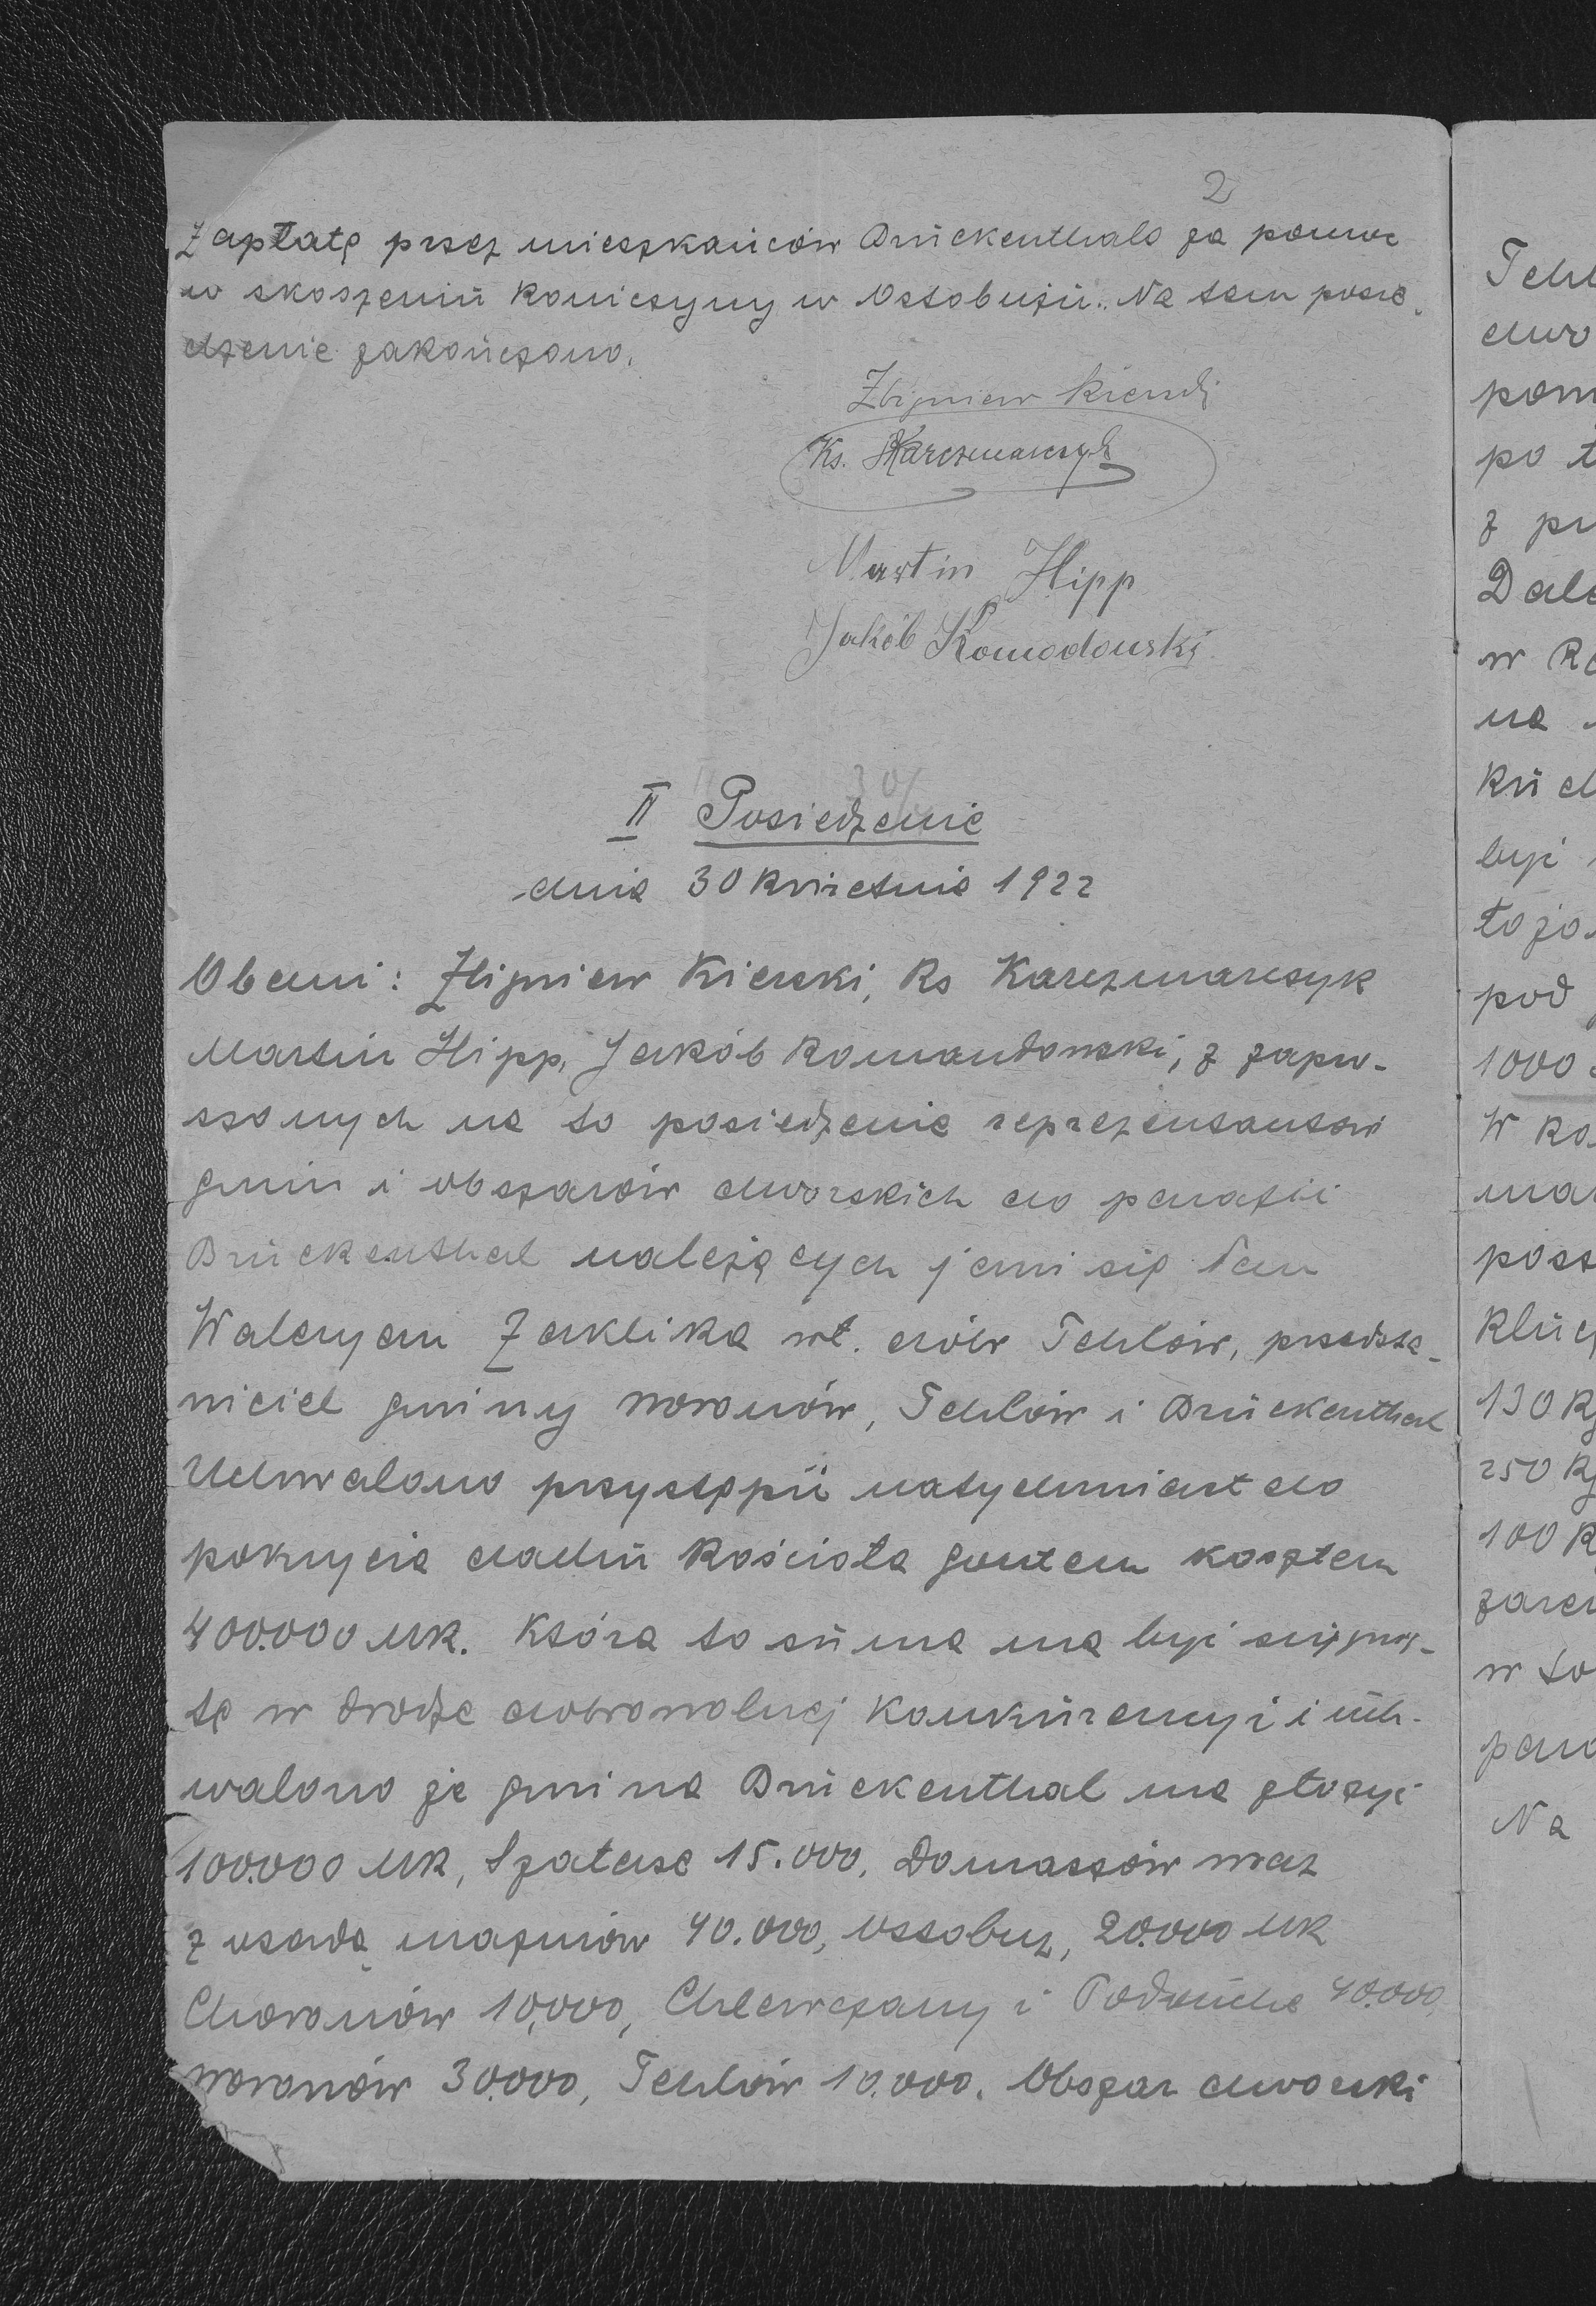 2
Zapłatę przez mieszkańców Brückenthala za pomoc
w skoszeniu koniczyny w Ostobużu. Na tem posie-
dzenie zakończono.
Zbigniew
Ks. Karczmarczyk
Martin Hipp
Jakób Komodowski
II Posiedzenie
dnia 30 kwietnia 1922
Obecni: Zbigniew Kierski, Ks Karczmarczyk
Martin Hipp, Jakób Komandowski, z zapro-
szonych na to posiedzenie reprezentantów
gmin i obszarów dworskich do parafii
Brückenthal należących jawi się Pan
Waleryan Zaklika wł. dóbr Tehlów, przedsta-
wiciel gminy Woronów, Tehlów i Brückenthal
Uchwalono przystąpić natychmiast do
pokrycia dachu kościoła gontem kosztem
400.000 Mk. Która to suma ma być ściągnię-
tą w drodze dobrowolnej konkurencyi i uch-
walono że gmina Brückenthal ma złożyć
100.000 Mk, Szałasze 15.000, Domaszów wraz
z osadą 40.000, Ostobuż, 20.000 Mk
Choronów 10,000, Chlewczany i 40.000,
Woronów 30.000, Tehlów 10.000. Obszar dworski
Tehl
dwo
pom
po t
z pr
Dale
w Ko
na
ku d
być
to zo
pod
1000
W ko
mar
post
klucz
130 Kg
250 Kg
100 K
w to
para
Na